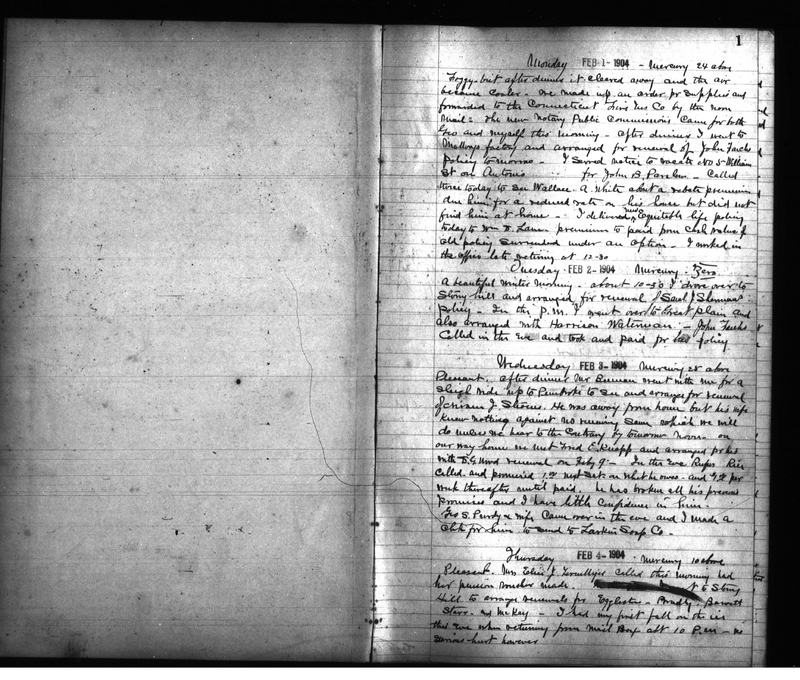 1
Monday FEB 1 - 1904 - Mercury 24 above
Foggy but after dinner it cleared away and the air
became cooler - We made up an order for supplies and
forwarded to the Connecticut Fire Ins Co by the noon
mail: The new Notary Public Commissions came for both
Geo and myself this morning - after dinner I went to
Mallorys factory and arranged for renewal of John Fuchs
policy tomorrow - I served notice to vacate No 5 William
St on Antonio for John B. - Called
today to see Wallace A. White about a rebate premium
due him for a reduced rate on his house but did not
find him at home - I delivered new Equitable life policy
today to Wm B. premium to paid from Cash value of
old policy surrended under an option - I worked in
the office late retiring at 12-30
Tuesday - FEB 2 - 1904 Mercury - Zero
A beautiful winter morning - about 10-30 I drove over to
Stony hill and arranged for renewal of J Shermans
policy - In the P.M. I went over to Great plain and
also arranged with Harrison Waterman - John Fuchs
Called in the Eve and took and paid for his policy
Wednesday FEB 3 - 1904 Mercury 28 above
Pleasant. after dinner Mr went with me for a
sleigh ride up to Pembroke to see and arrange for renewal
of Hiram J. Stevens. He was away from home but his wife
knew nothing against us renewing same which we will
do unless we hear to the Contrary by tomorrow noon - on
our way home we met Fred E. Knapp and arranged for his
renewal on Feby 9" - In the Eve Rufus
called and promised next Sat on what he owes - and per
week thereafter until paid. he has broken all his previous
promises and I have little confidence in him.
Geo S. Purdy & wife came over in the eve and I made a
for him to send to Larkin Soap Co.
Thursday FEB 4 - 1904 - Mercury 10 above
Pleasant. Mrs J. called this morning had
her pension voucher made. to Stony
Hill to arrange renewals for Eggleston - Bradley, Barrett
Starr - and McKay - I had my first fall on the ice
this Eve when returning from mail Box abt 10 P.M - no
serious hurt however